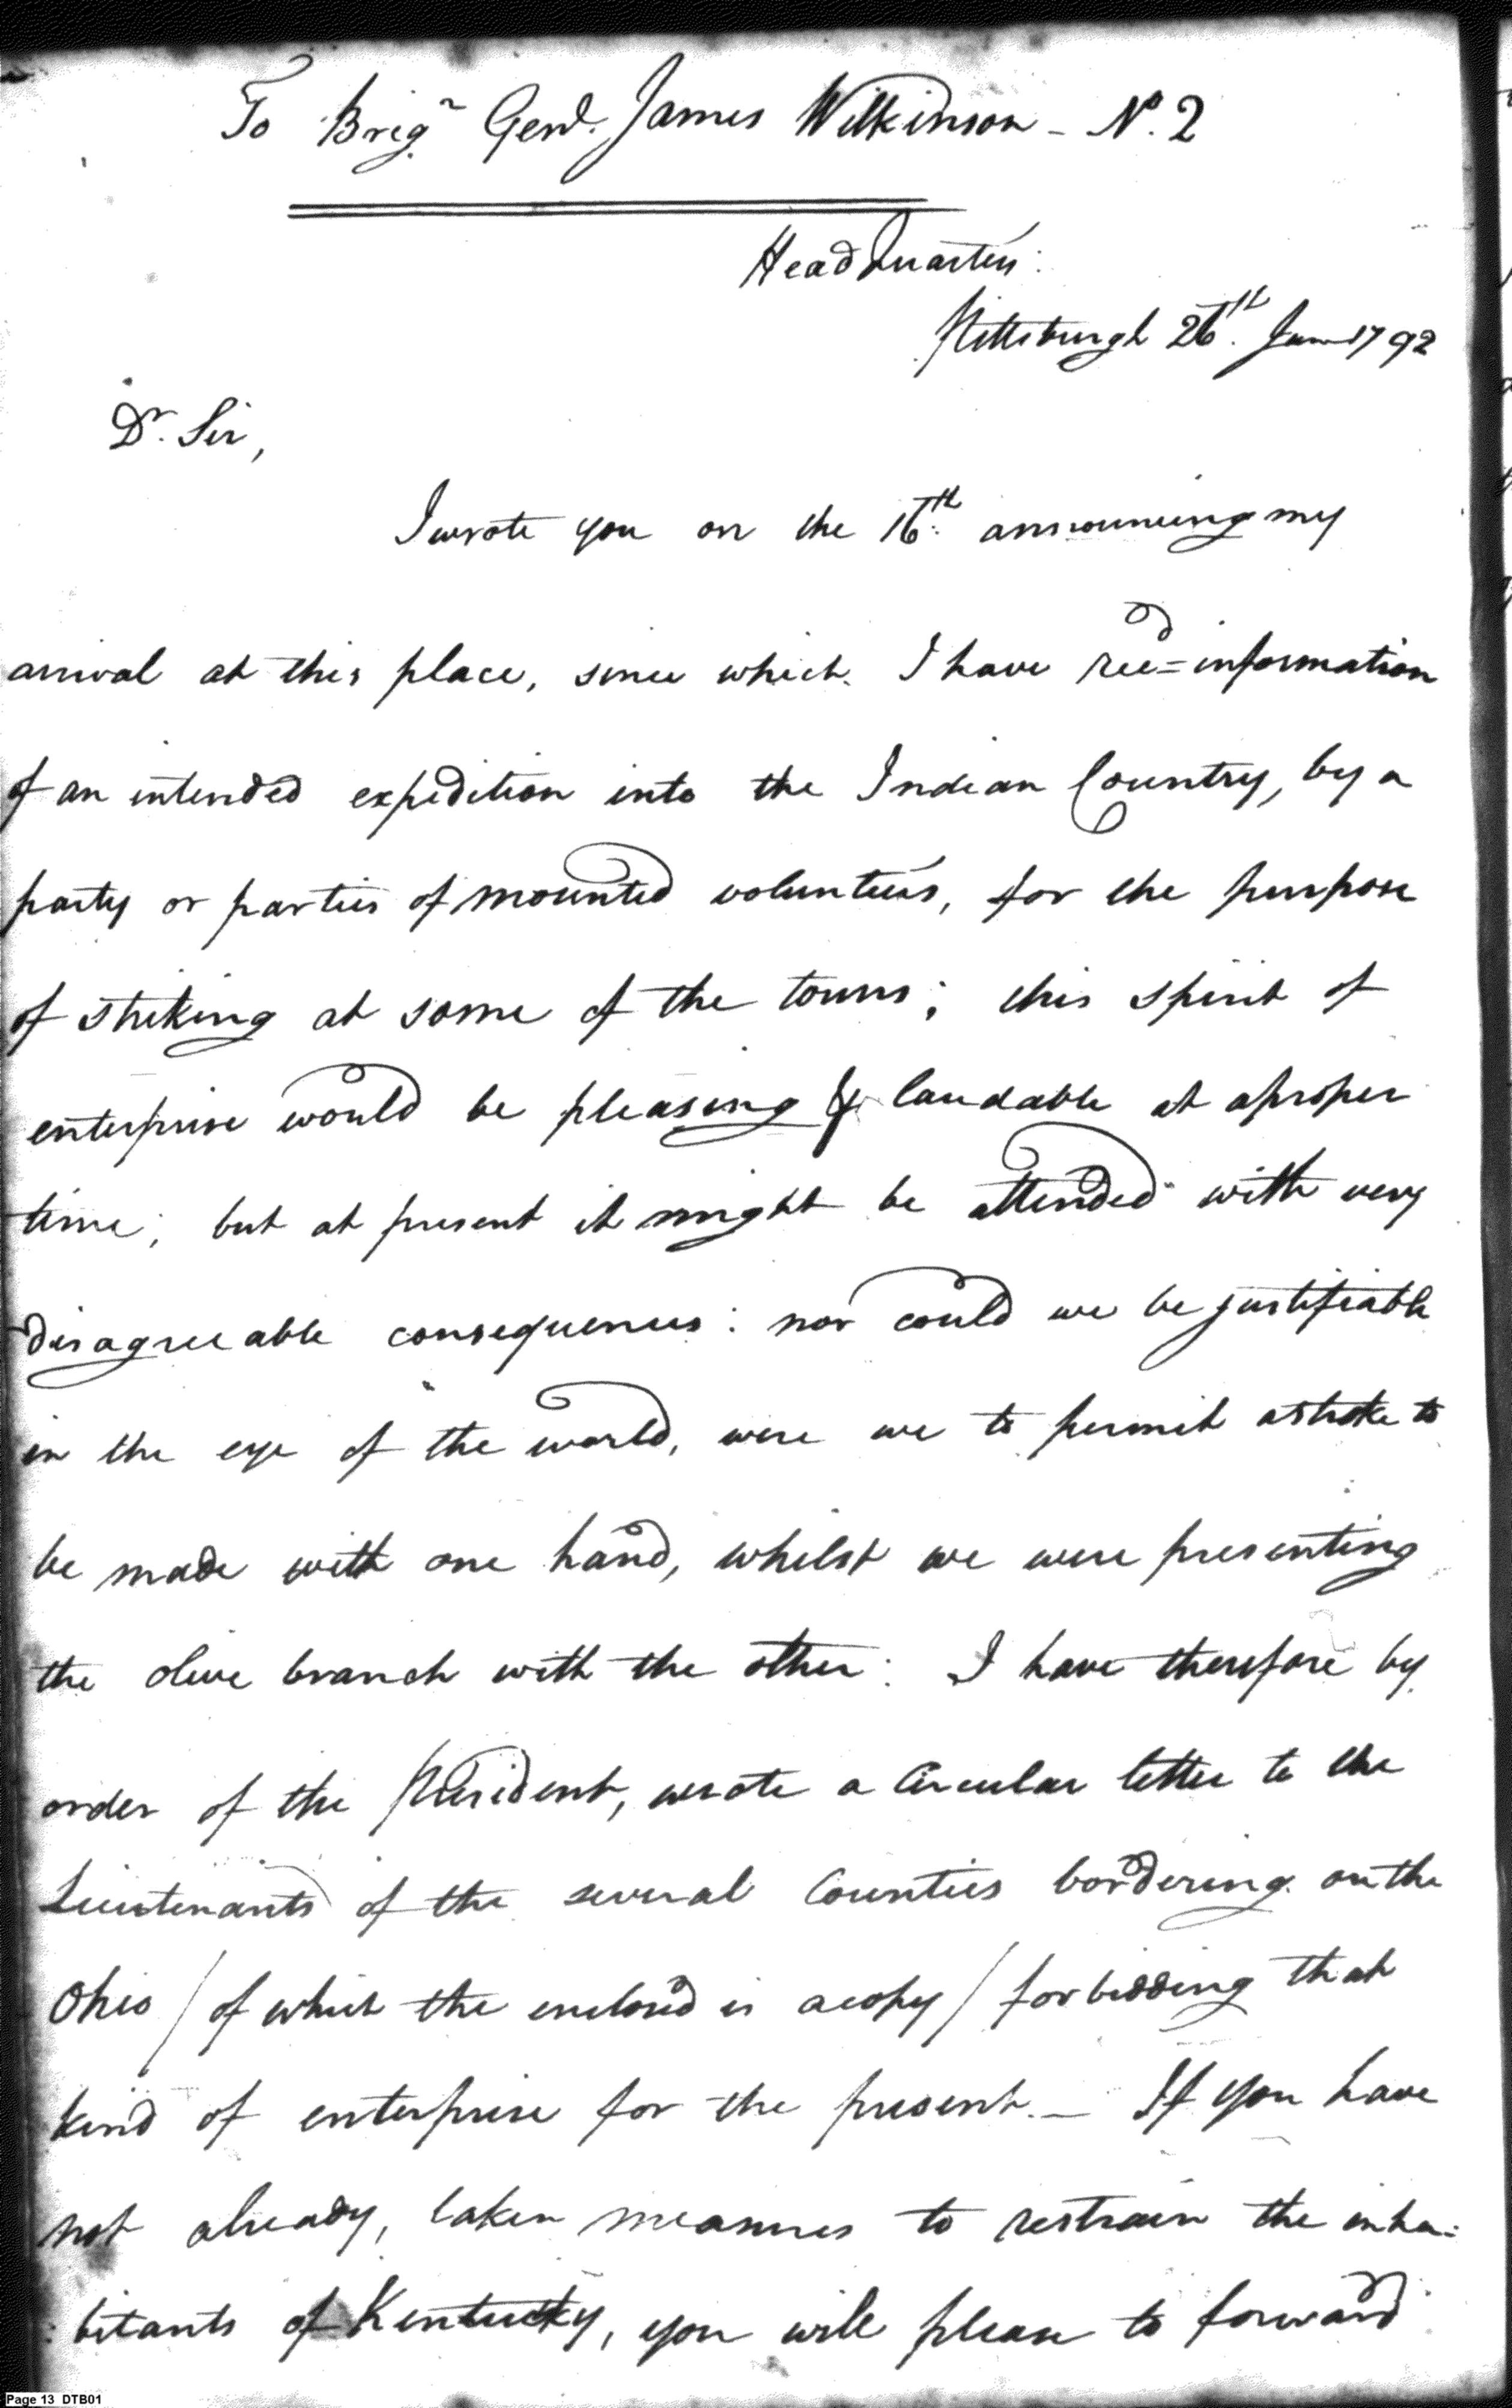 To Brigr Genl. James Wilkinson - No. 2
Head Quarters:
Pittsburgh 26th. June 1792
Dr. Sir,
I wrote you on the 16th: announcing my
arrival at this place, since which I have recd= information
of an intended expedition into the Indian Country, by a
party or parties of mounted volunteers, for the purpose
of striking at some of the towns; this spirit of
enterprise would be pleasing & laudable at a proper
time; but at present it might be attended with very
disagreeable consequences: nor could we be justifiable
in the eye of the world, were we to permit a stroke to
be made with one hand, whilst we were presenting
the olive branch with the other: I have therefore by
order of the President, wrote a Circular letter to the
Lieutenants of the several Counties bordering on the
Ohio / of which the enclosed is a copy / forbidding that
kind of enterprise for the present. — If you have
not already, taken measures to restrain the inha:
:bitants of Kentucky, you will please to forward
Page 13 DTB01